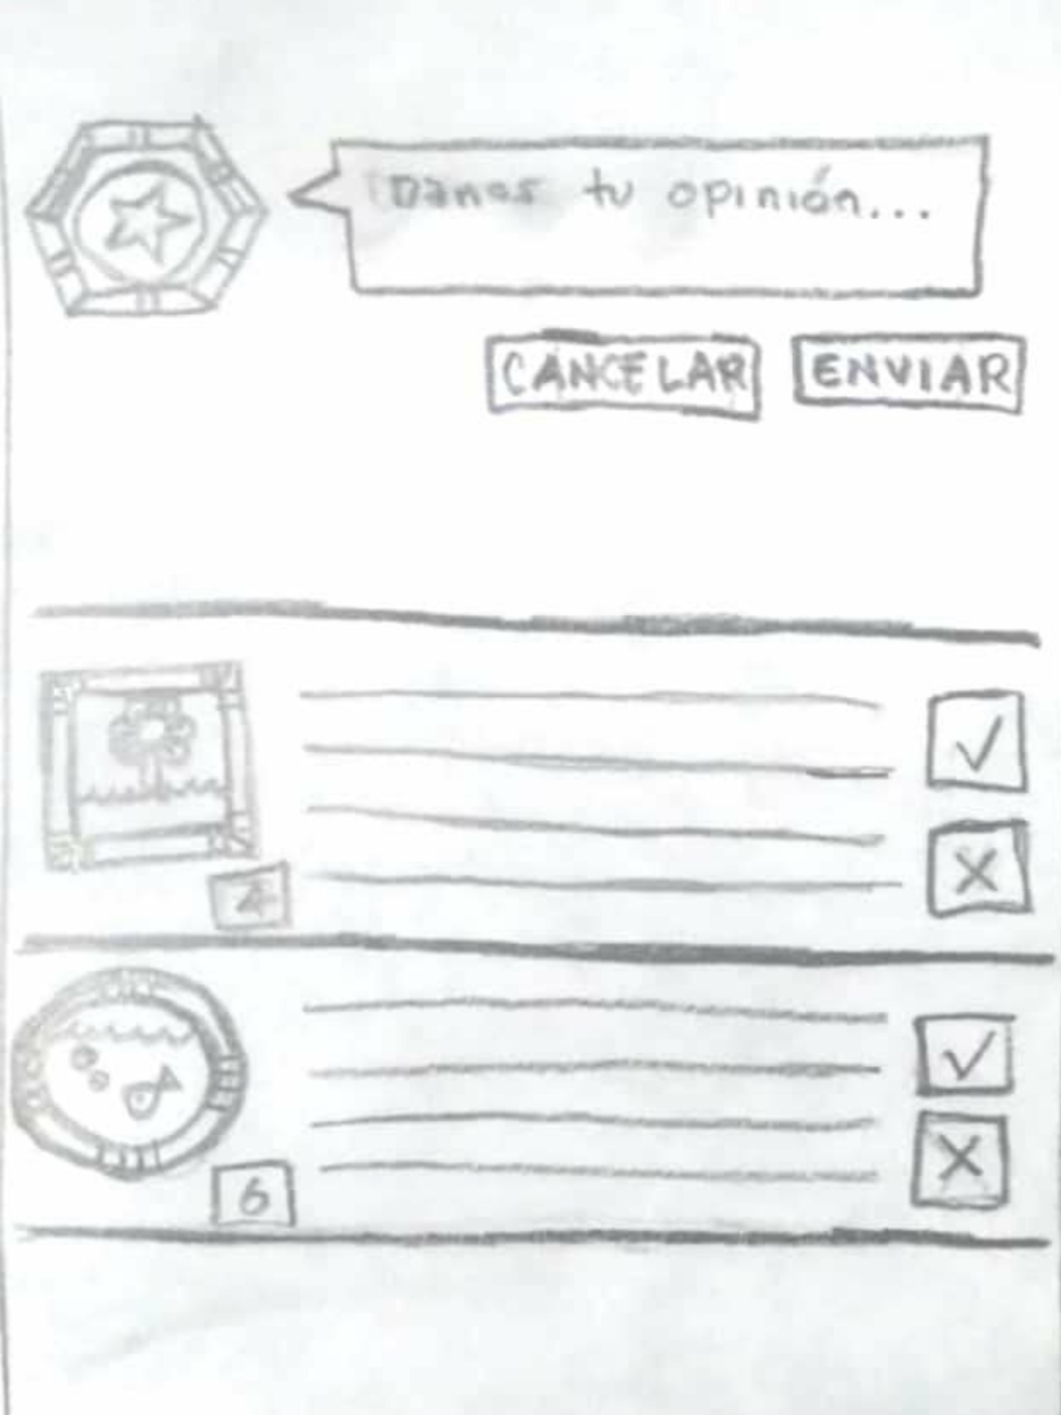 Danos tu opinión...
CANCELAR ENVIAR
4
6